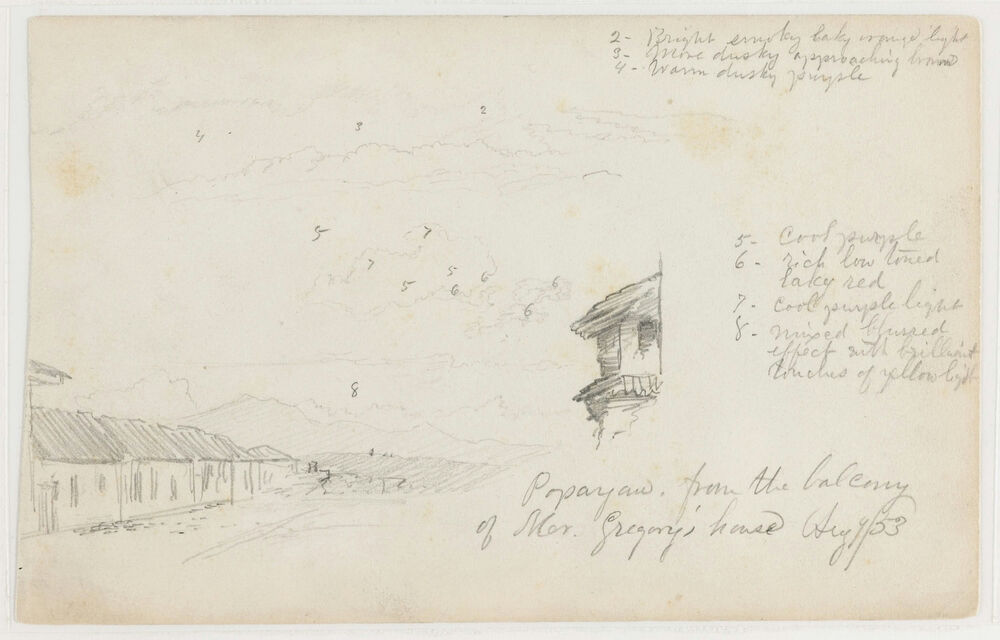 2- Bright smoky laky orange light
3- More dusky approaching brown
4- Warm dusky purple
2
3
4
5
7
5- Cool purple
6- rich low toned
laky red
7
5
6
5
6
6
6
7- Cool purple light
8- mixed blurred
effect with brilliant
touches of yellow light
8
Popayan. from the balcony
of Mer. Gregory's house Aug /53